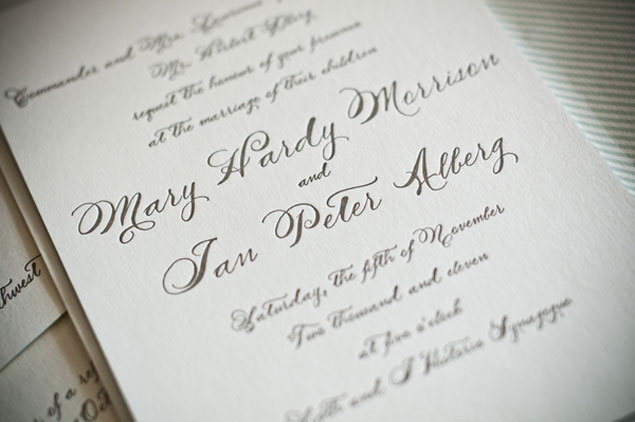 Commander and Mrs. Lawrence
Mr. Robert Alberg
request the honour of your presence
at the marriage of their children
Mary Hardy Morrison
and
Ian Peter Alberg
Saturday, the fifth of November
Two thousand and eleven
at five o'clock
Sixth and I Historic Synagogue
thwest
of a